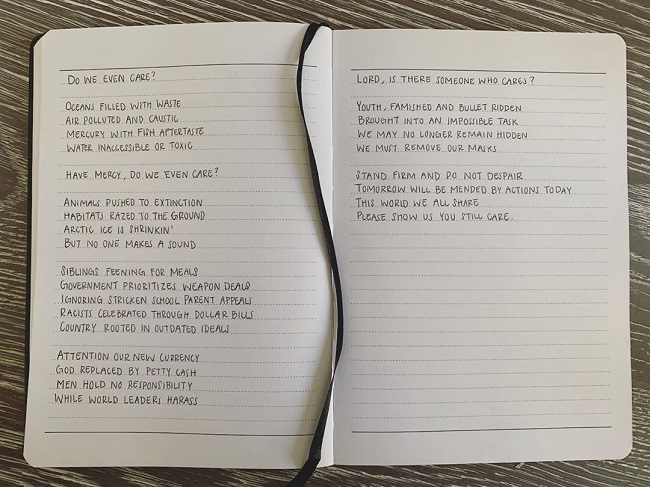 DO WE EVEN CARE?
OCEANS FILLED WITH WASTE
AIR POLLUTED AND CAUSTIC
MERCURY WITH FISH AFTERTASTE
WATER INACCESSIBLE OR TOXIC
HAVE MERCY, DO WE EVEN CARE?
ANIMALS PUSHED TO EXTINCTION
HABITATS RAZED TO THE GROUND
ARCTIC ICE IS SHRINKIN'
BUT NO ONE MAKES A SOUND
SIBLINGS FEENING FOR MEALS
GOVERNMENT PRIORITIZES WEAPON DEALS
IGNORING STRICKEN SCHOOL PARENT APPEALS
RACISTS CELEBRATED THROUGH DOLLAR BILLS
COUNTRY ROOTED IN OUTDATED IDEALS
ATTENTION OUR NEW CURRENCY
GOD REPLACED BY PETTY CASH
MEN HOLD NO RESPONSIBILITY
WHILE WORLD LEADERS HARASS
LORD, IS THERE SOMEONE WHO CARES?
YOUTH, FAMISHED AND BULLET RIDDEN
BROUGHT INTO AN IMPOSSIBLE TASK
WE MAY NO LONGER REMAIN HIDDEN
WE MUST REMOVE OUR MASKS
STAND FIRM AND DO NOT DESPAIR
TOMORROW WILL BE MENDED BY ACTIONS TODAY
THIS WORLD WE ALL SHARE
PLEASE SHOW US YOU STILL CARE.